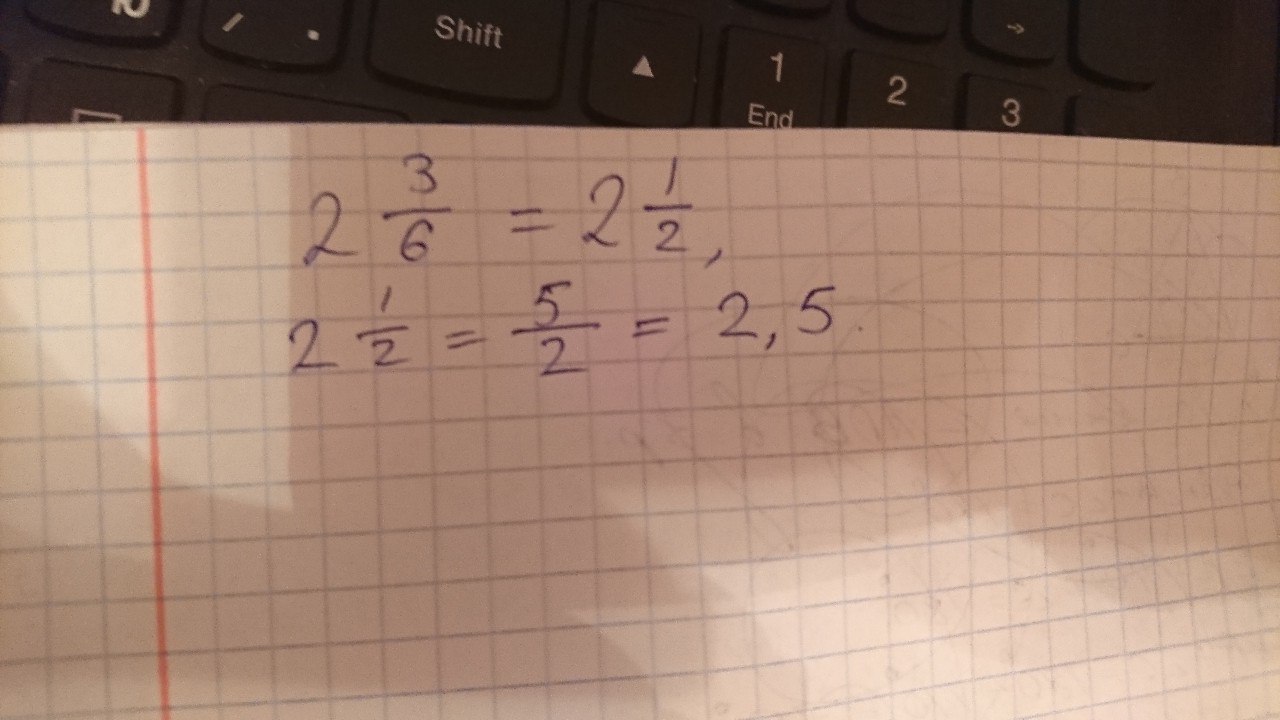 / .
Shift
▲
1
End
2
3
→
2 3/6 = 2 1/2,
2 1/2 = 5/2 = 2,5.